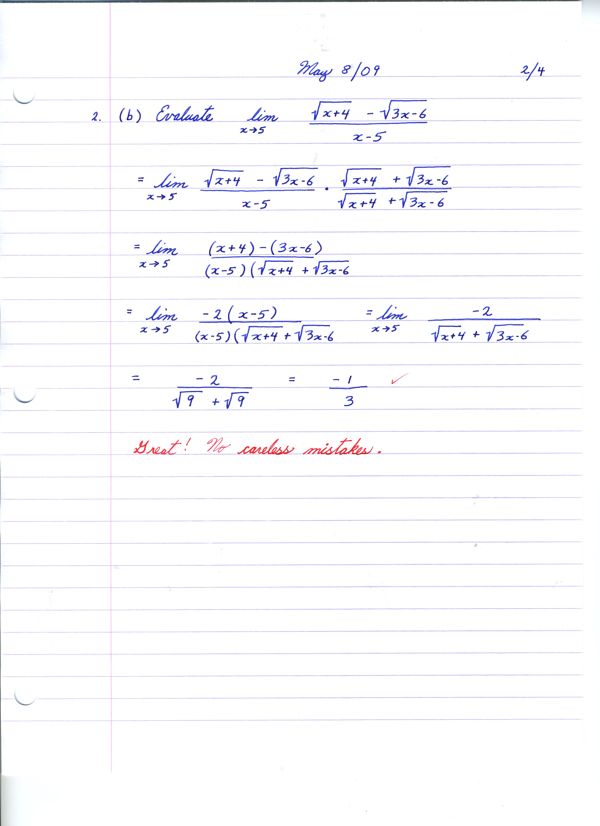 May 8/09 2/4
2. (b) Evaluate lim x→5 (√(x+4) - √(3x-6))/(x-5)
= lim x→5 (√(x+4) - √(3x-6))/(x-5) · (√(x+4) + √(3x-6))/(√(x+4) + √(3x-6))
= lim x→5 ((x+4)-(3x-6))/((x-5)(√(x+4) + √(3x-6))
= lim x→5 (-2(x-5))/((x-5)(√(x+4) + √(3x-6)) = lim x→5 (-2)/(√(x+4) + √(3x-6))
= (-2)/(√9 + √9) = (-1)/3 ✓
Great! No careless mistakes.